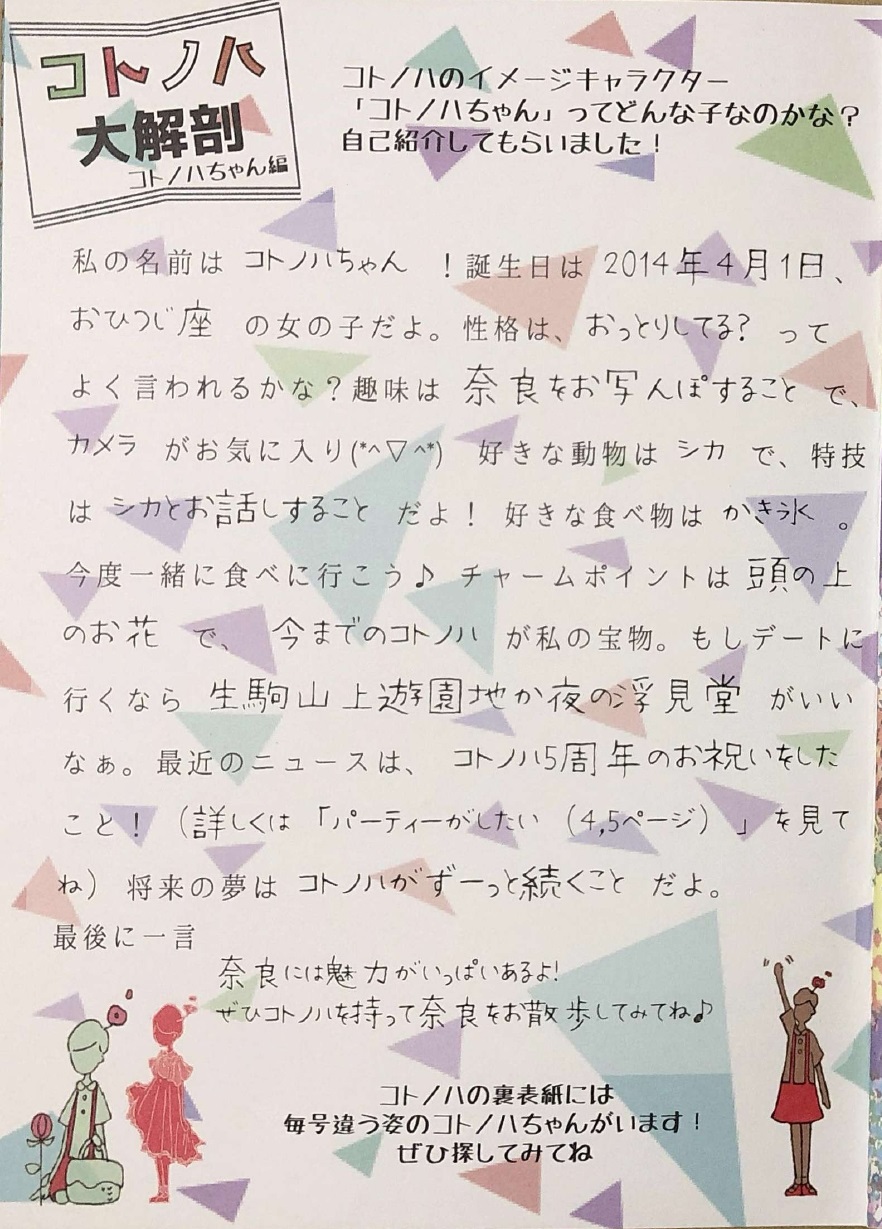 コトノハ
大解剖
コトノハちゃん編
コトノハのイメージキャラクター
「コトノハちゃん」ってどんな子なのかな？
自己紹介してもらいました！
私の名前は コトノハちゃん ！誕生日は 2014年4月1日、
おひつじ座 の女の子だよ。性格は、おっとりしてる? って
よく言われるかな？趣味は 奈良をお写んぽすること で、
カメラ がお気に入り(*^▽^*) 好きな動物は シカ で、特技
は シカとお話しすること だよ！ 好きな食べ物は かき氷 。
今度一緒に食べに行こう♪ チャームポイントは 頭の上
のお花 で、 今までのコトノハ が私の宝物。もしデートに
行くなら 生駒山上遊園地か夜の浮見堂 がいい
なぁ。最近のニュースは、 コトノハ5周年のお祝いをした
こと！（詳しくは「パーティーがしたい（4,5ページ）」を見て
ね）将来の夢は コトノハがずーっと続くこと だよ。
最後に一言
奈良には魅力がいっぱいあるよ!
ぜひコトノハを持って奈良をお散歩してみてね♪
コトノハの裏表紙には
毎号違う姿のコトノハちゃんがいます！
ぜひ探してみてね